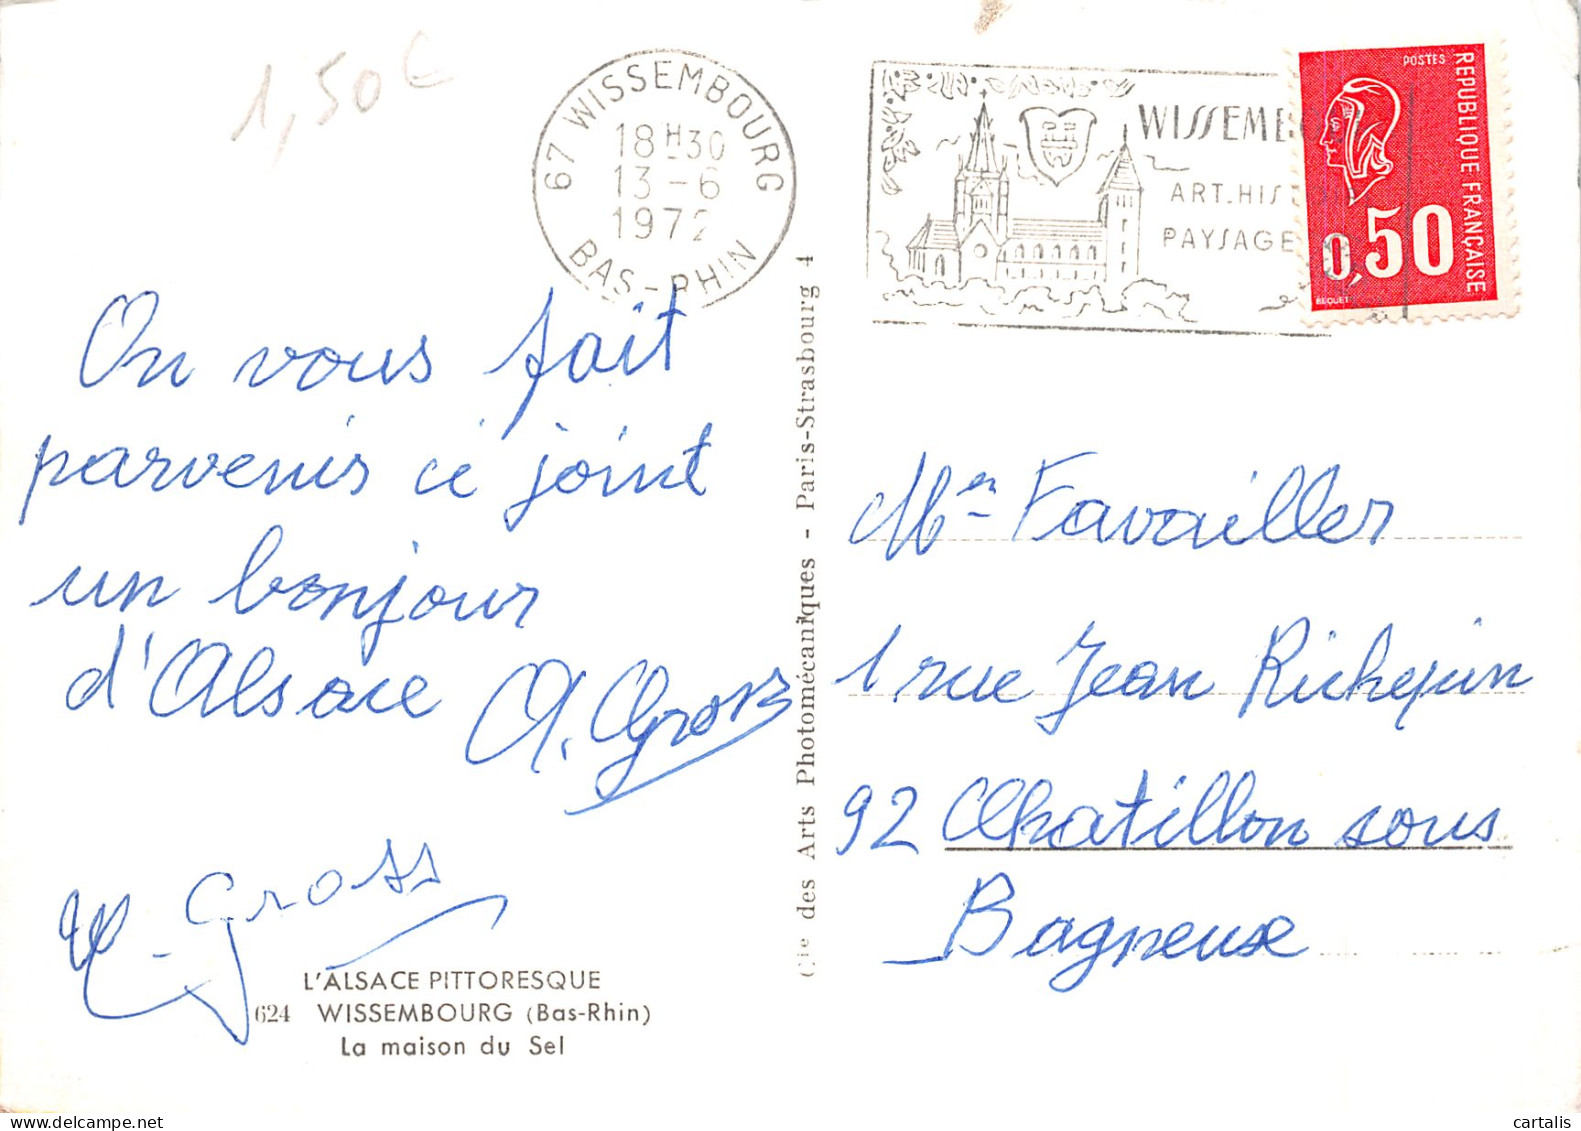 1,50€
67 WISSEMBOURG
18H30
13-6
1972
BAS-RHIN
WISSEMB
ART.HIST
PAYSAGE
POSTES
REPUBLIQUE FRANÇAISE
0,50
BEQUET
On vous fait
parvenir ci joint
un bonjour
d'Alsace A. Gross
Gross
L'ALSACE PITTORESQUE
624 WISSEMBOURG (Bas-Rhin)
La maison du Sel
Cie des Arts Photomécaniques - Paris-Strasbourg 4
Favailler
1 rue Jean Richepin
92 Chatillon sous
Bagneux
cartalis